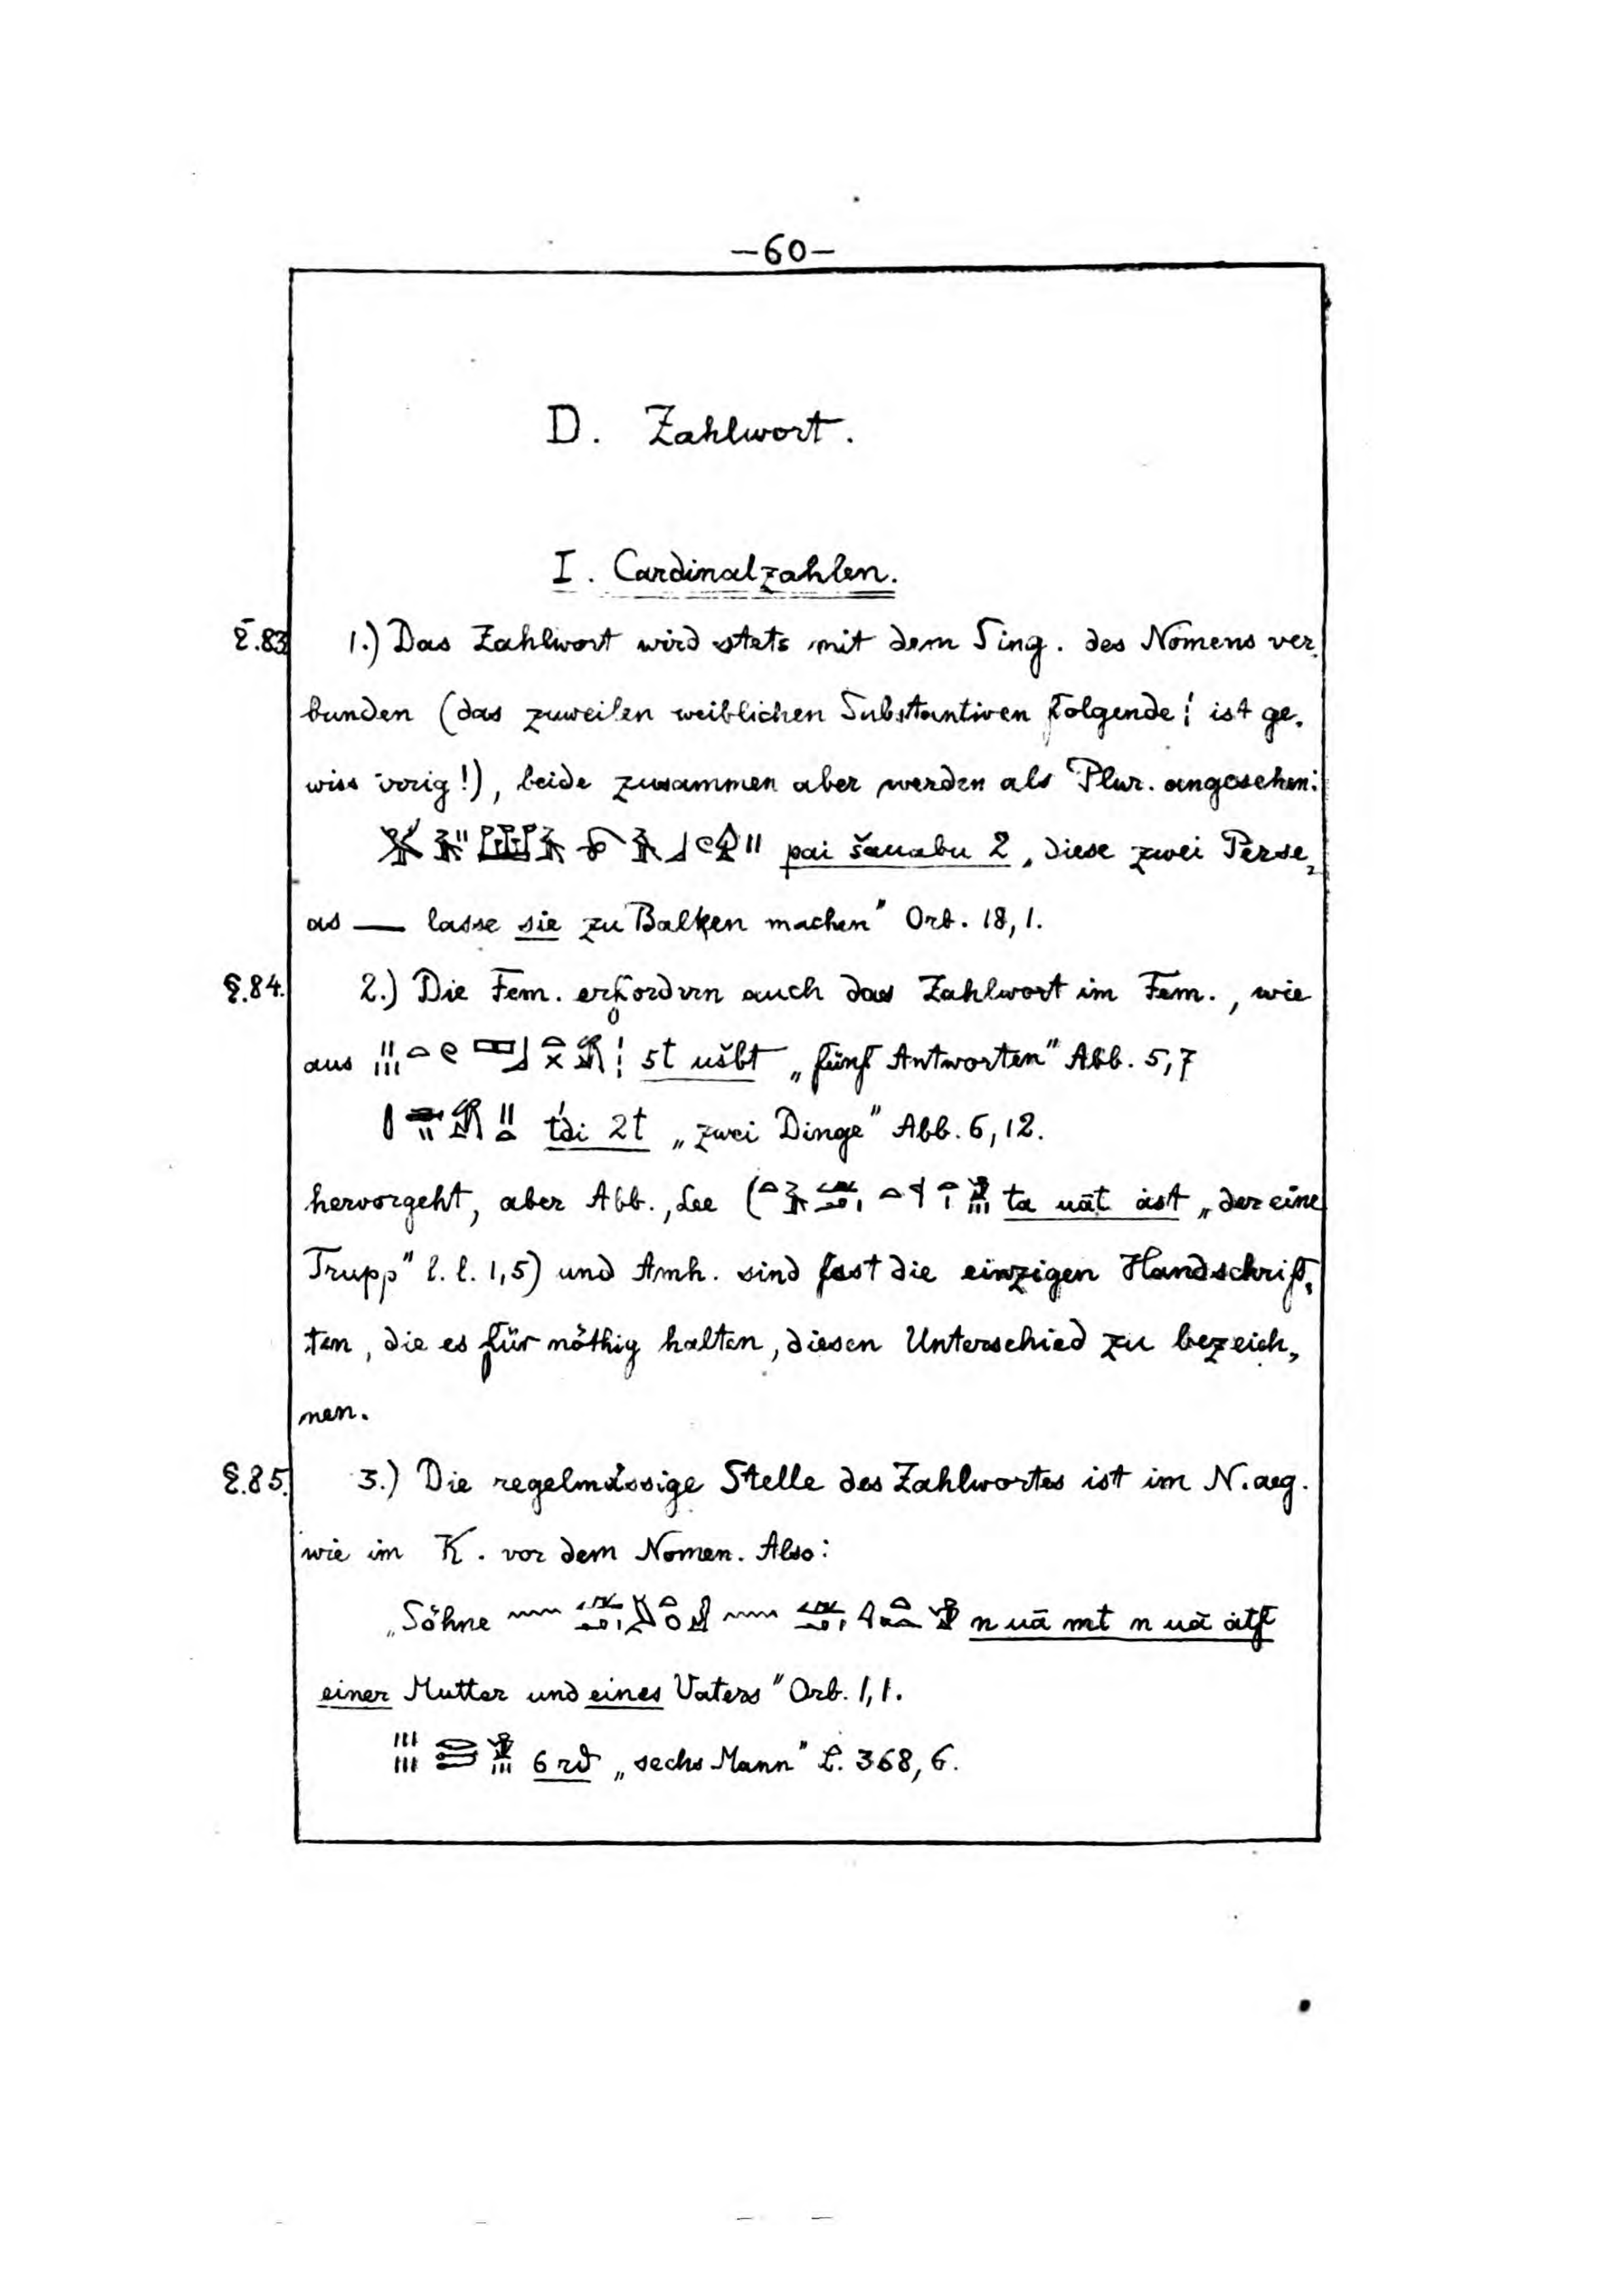 —60—
D. Zahlwort.
I. Cardinalzahlen.
§.83 1.) Das Zahlwort wird stets mit dem Sing. des Nomens ver-
bunden (das zuweilen weiblichen Substantiven folgende ¦ ist ge-
wiss irrig!), beide zusammen aber werden als Plur. angesehen:
pai šauabu 2 „diese zwei Perse-
as — lasse sie zu Balken machen" Orb. 18,1.
§.84. 2.) Die Fem. erfordern auch das Zahlwort im Fem., wie
aus 5t ušbt „fünf Antworten" Abb. 5,7
2t „zwei Dinge" Abb. 6,12.
hervorgeht, aber Abb., Lee ( ta uāt ȧst „der eine
Trupp" l.l. 1,5) und Amh. sind fast die einzigen Handschrif-
ten, die es für nöthig halten, diesen Unterschied zu bezeich-
nen.
§.85. 3.) Die regelmässige Stelle des Zahlwortes ist im N.aeg.
wie im K. vor dem Nomen. Also:
„Söhne n uā mt n uā ȧtf
einer Mutter und eines Vaters" Orb. 1,1.
6 rd „sechs Mann" L. 368,6.